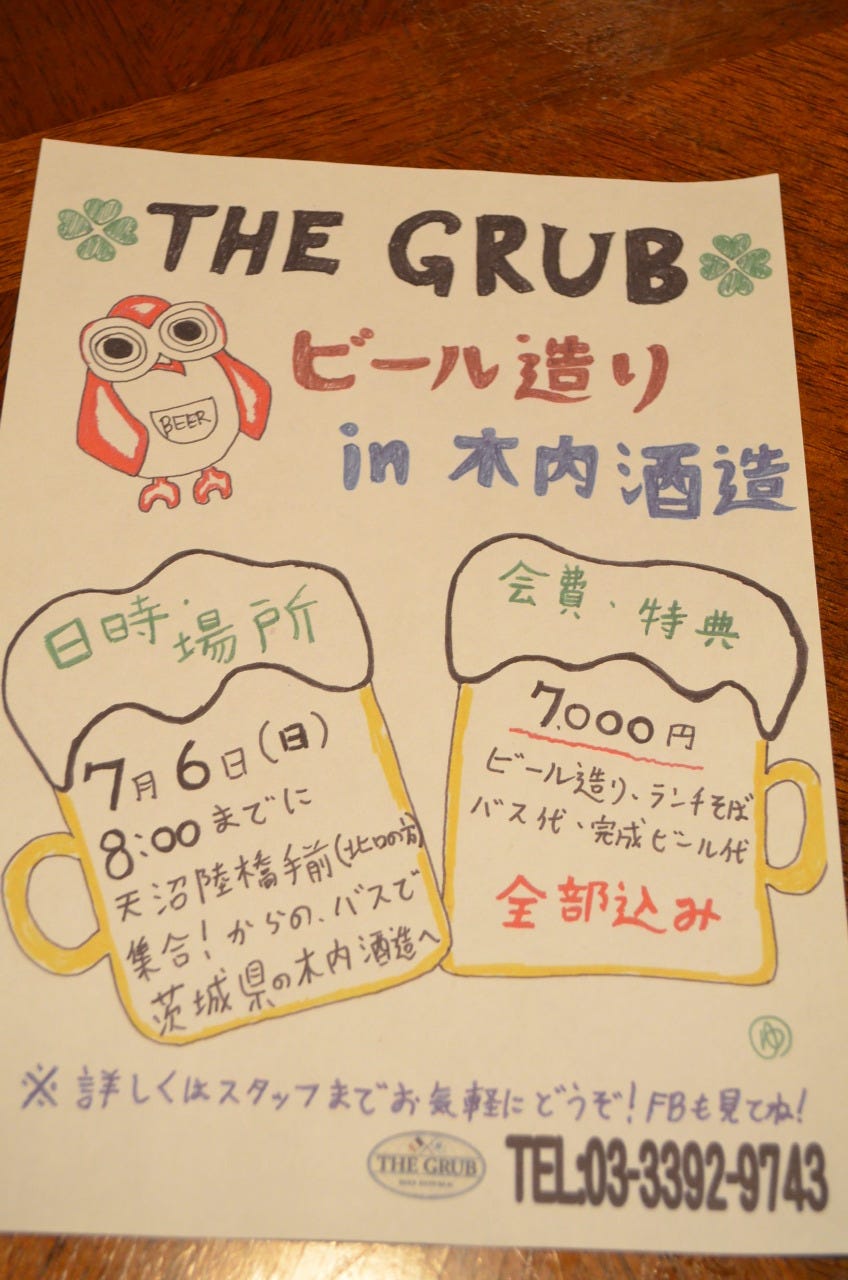 THE GRUB
BEER
ビール造り
in 木内酒造
日時・場所
7月6日(日)
8:00までに
天沼陸橋手前(北口の方)
集合!からの、バスで
茨城県の木内酒造へ
会費・特典
7,000円
ビール造り、ランチそば
バス代、完成ビール代
全部込み
ゆ
※詳しくはスタッフまでお気軽にどうぞ!FBも見てね!
THE GRUB
TEL:03-3392-9743